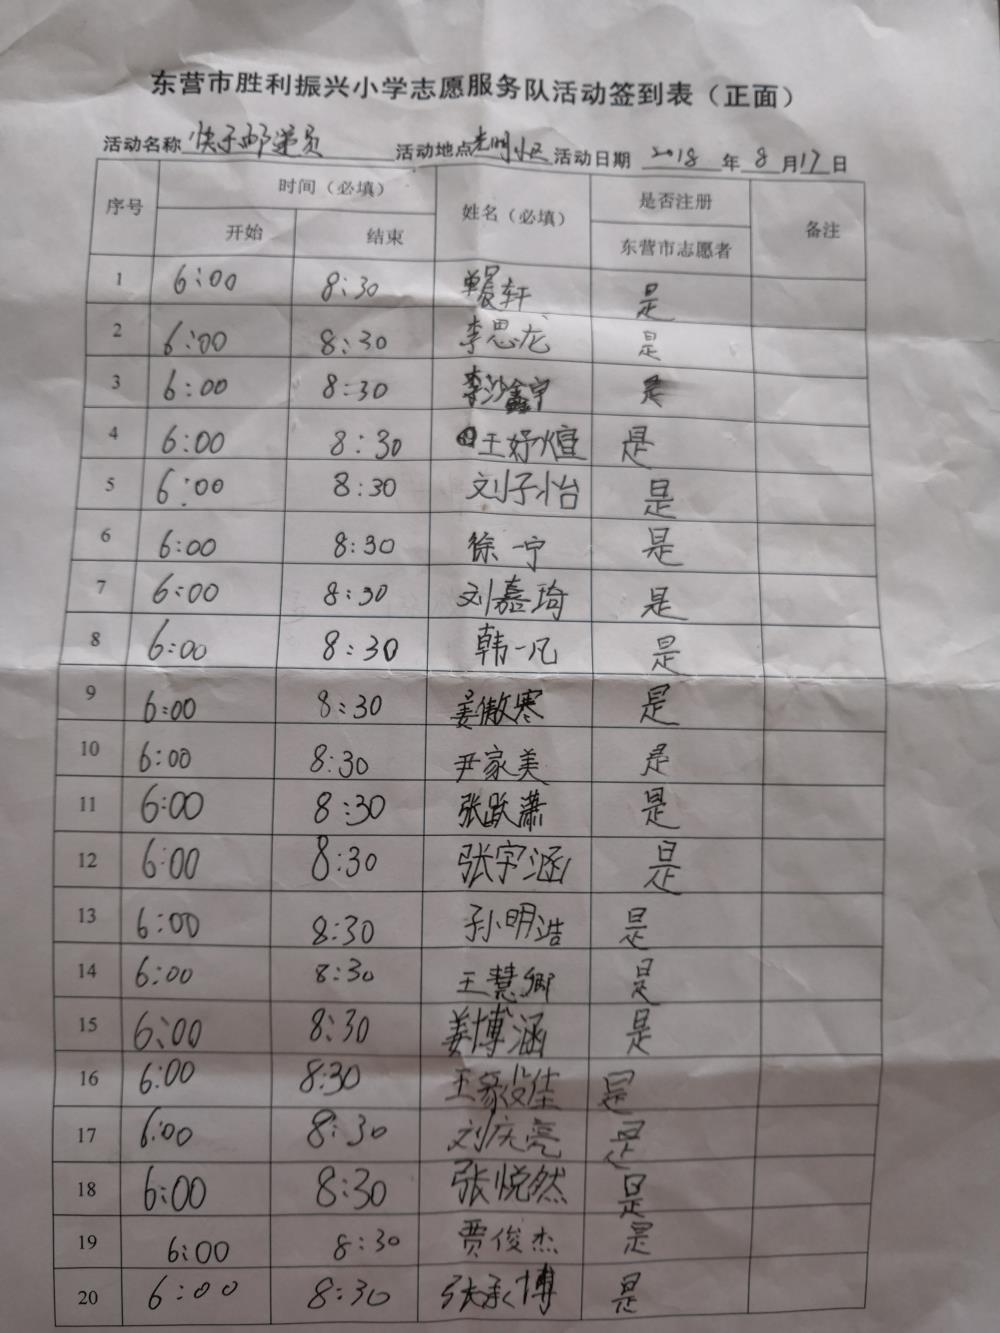 东营市胜利振兴小学志愿服务队活动签到表（正面）
活动名称 快乐邮递员 活动地点 光明小区 活动日期 2018 年 8 月 17 日
序号 时间（必填） 姓名（必填） 是否注册 备注
开始 结束 东营市志愿者
1 6:00 8:30 单晨轩 是
2 6:00 8:30 李思龙 是
3 6:00 8:30 李沙鑫宇 是
4 6:00 8:30 王妤煊 是
5 6:00 8:30 刘子怡 是
6 6:00 8:30 徐一宁 是
7 6:00 8:30 刘嘉琦 是
8 6:00 8:30 韩一凡 是
9 6:00 8:30 姜傲寒 是
10 6:00 8:30 尹家美 是
11 6:00 8:30 张跃潇 是
12 6:00 8:30 张宇涵 是
13 6:00 8:30 孙明浩 是
14 6:00 8:30 王慧卿 是
15 6:00 8:30 姜博涵 是
16 6:00 8:30 是
17 6:00 8:30 刘庆亮 是
18 6:00 8:30 张悦然 是
19 6:00 8:30 贾俊杰 是
20 6:00 8:30 张承博 是